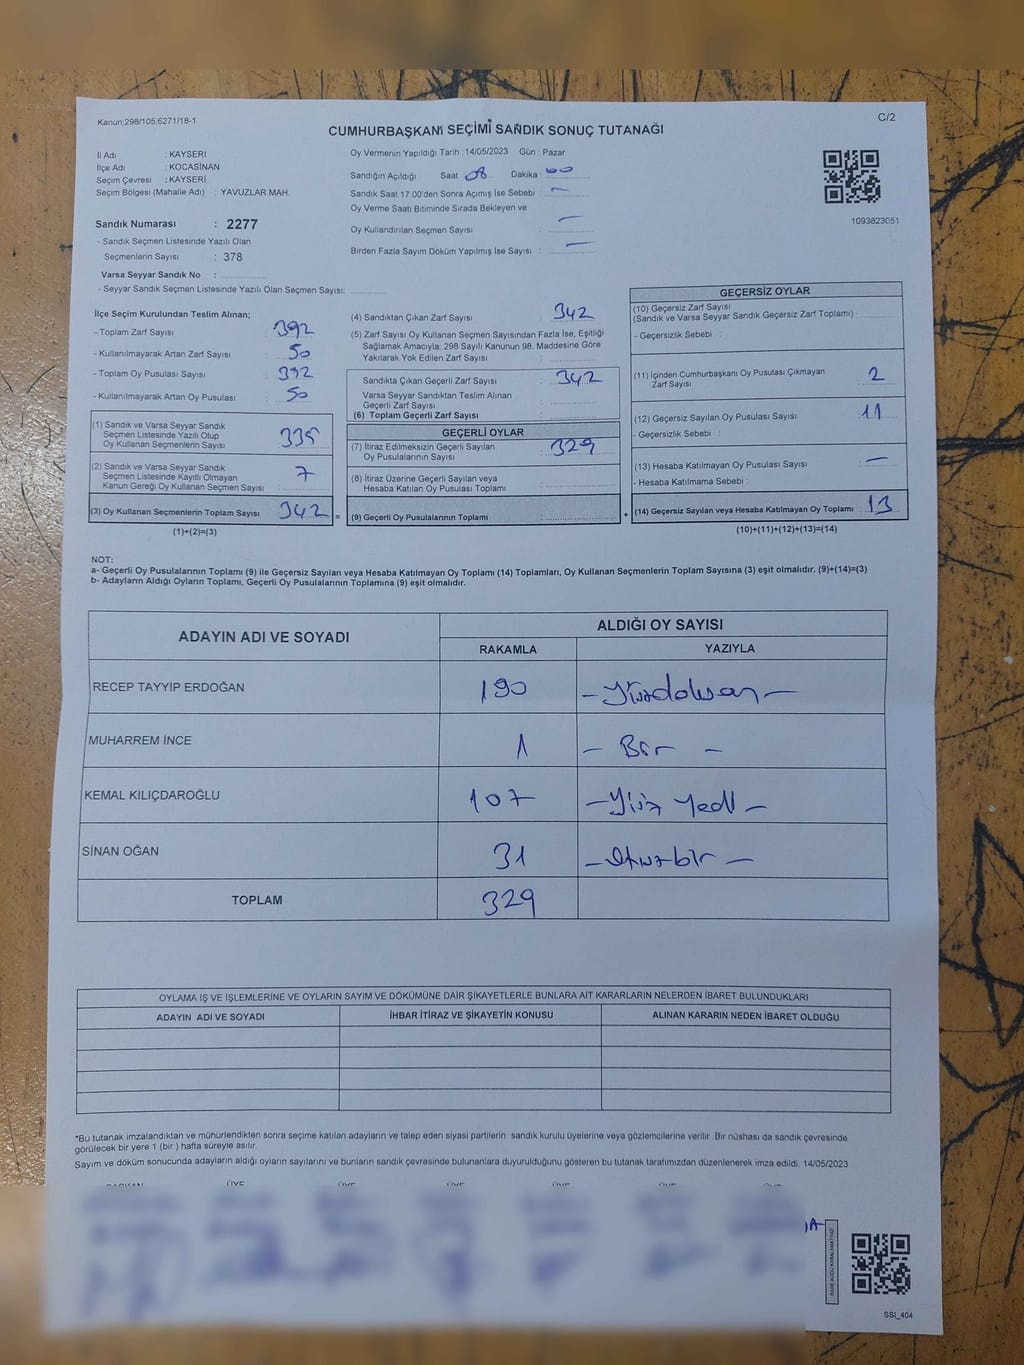 Kanun;298/105;6271/18-1
C/2
CUMHURBAŞKANI SEÇİMİ SANDIK SONUÇ TUTANAĞI
İl Adı : KAYSERİ
İlçe Adı : KOCASİNAN
Seçim Çevresi : KAYSERİ
Seçim Bölgesi (Mahalle Adı) : YAVUZLAR MAH.
Oy Vermenin Yapıldığı Tarih :14/05/2023 Gün : Pazar
Sandığın Açıldığı Saat 08 Dakika : 00
Sandık Saat 17:00'den Sonra Açımış İse Sebebi : —
Oy Verme Saati Bitiminde Sırada Bekleyen ve
Oy Kullandırılan Seçmen Sayısı : —
Birden Fazla Sayım Döküm Yapılmış İse Sayısı : —
1093823051
Sandık Numarası : 2277
- Sandık Seçmen Listesinde Yazılı Olan
Seçmenlerin Sayısı : 378
Varsa Seyyar Sandık No :
- Seyyar Sandık Seçmen Listesinde Yazılı Olan Seçmen Sayısı:
İlçe Seçim Kurulundan Teslim Alınan;
- Toplam Zarf Sayısı : 392
- Kullanılmayarak Artan Zarf Sayısı : 50
- Toplam Oy Pusulası Sayısı : 392
- Kullanılmayarak Artan Oy Pusulası : 50
(1) Sandık ve Varsa Seyyar Sandık
Seçmen Listesinde Yazılı Olup
Oy Kullanan Seçmenlerin Sayısı : 335
(2) Sandık ve Varsa Seyyar Sandık
Seçmen Listesinde Kayıtlı Olmayan
Kanun Gereği Oy Kullanan Seçmen Sayısı : 7
(3) Oy Kullanan Seçmenlerin Toplam Sayısı : 342 =
(1)+(2)=(3)
(4) Sandıktan Çıkan Zarf Sayısı : 342
(5) Zarf Sayısı Oy Kullanan Seçmen Sayısından Fazla İse, Eşitliği
Sağlamak Amacıyla; 298 Sayılı Kanunun 98. Maddesine Göre
Yakılarak Yok Edilen Zarf Sayısı :
Sandıkta Çıkan Geçerli Zarf Sayısı : 342
Varsa Seyyar Sandıktan Teslim Alınan
Geçerli Zarf Sayısı :
(6) Toplam Geçerli Zarf Sayısı :
GEÇERLİ OYLAR
(7) İtiraz Edilmeksizin Geçerli Sayılan
Oy Pusulalarının Sayısı : 329
(8) İtiraz Üzerine Geçerli Sayılan veya
Hesaba Katılan Oy Pusulası Toplamı :
(9) Geçerli Oy Pusulalarının Toplamı : +
GEÇERSİZ OYLAR
(10) Geçersiz Zarf Sayısı
(Sandık ve Varsa Seyyar Sandık Geçersiz Zarf Toplamı) :
- Geçersizlik Sebebi :
(11) İçinden Cumhurbaşkanı Oy Pusulası Çıkmayan
Zarf Sayısı : 2
(12) Geçersiz Sayılan Oy Pusulası Sayısı : 11
- Geçersizlik Sebebi :
(13) Hesaba Katılmayan Oy Pusulası Sayısı : —
- Hesaba Katılmama Sebebi :
(14) Geçersiz Sayılan veya Hesaba Katılmayan Oy Toplamı : 13
(10)+(11)+(12)+(13)=(14)
NOT:
a- Geçerli Oy Pusulalarının Toplamı (9) ile Geçersiz Sayılan veya Hesaba Katılmayan Oy Toplamı (14) Toplamları, Oy Kullanan Seçmenlerin Toplam Sayısına (3) eşit olmalıdır. (9)+(14)=(3)
b- Adayların Aldığı Oyların Toplamı, Geçerli Oy Pusulalarının Toplamına (9) eşit olmalıdır.
ADAYIN ADI VE SOYADI
ALDIĞI OY SAYISI
RAKAMLA YAZIYLA
RECEP TAYYİP ERDOĞAN 190 – Yüzdoksan –
MUHARREM İNCE 1 – Bir –
KEMAL KILIÇDAROĞLU 107 – Yüz Yedi –
SİNAN OĞAN 31 – Otuzbir –
TOPLAM 329
OYLAMA İŞ VE İŞLEMLERİNE VE OYLARIN SAYIM VE DÖKÜMÜNE DAİR ŞİKAYETLERLE BUNLARA AİT KARARLARIN NELERDEN İBARET BULUNDUKLARI
ADAYIN ADI VE SOYADI İHBAR İTİRAZ VE ŞİKAYETİN KONUSU ALINAN KARARIN NEDEN İBARET OLDUĞU
*Bu tutanak imzalandıktan ve mühürlendikten sonra seçime katılan adayların ve talep eden siyasi partilerin sandık kurulu üyelerine veya gözlemcilerine verilir. Bir nüshası da sandık çevresinde
görülecek bir yere 1 (bir ) hafta süreyle asılır.
Sayım ve döküm sonucunda adayların aldığı oyların sayılarını ve bunların sandık çevresinde bulunanlara duyurulduğunu gösteren bu tutanak tarafımızdan düzenlenerek imza edildi. 14/05/2023
BAŞKAN ÜYE ÜYE ÜYE ÜYE ÜYE ÜYE
SSI_404